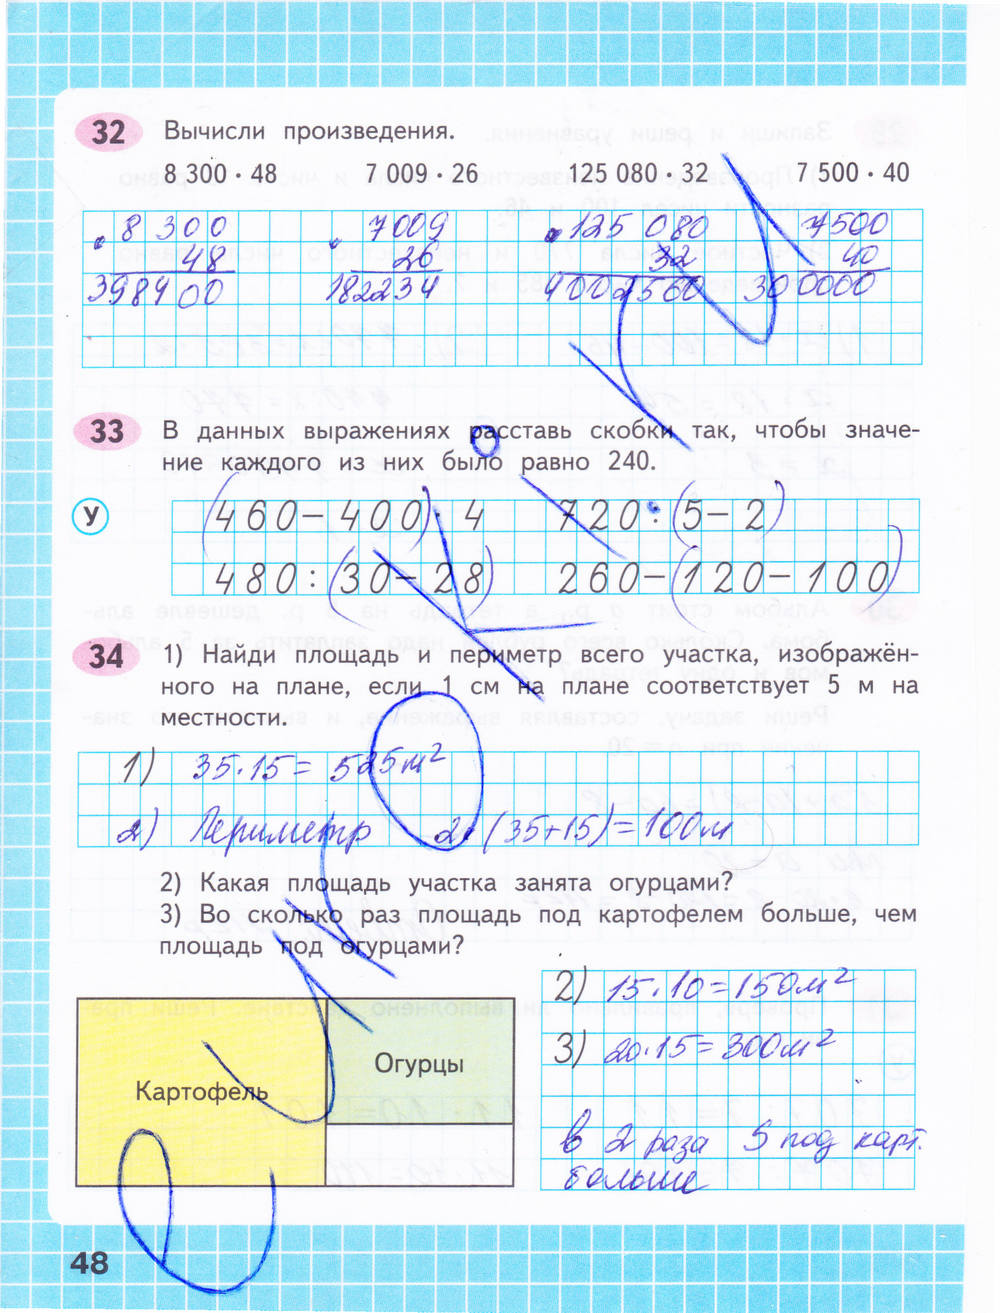 32 Вычисли произведения.
8 300 · 48 7 009 · 26 125 080 · 32 7 500 · 40
8 300 7009 125 080 7500
48 26 32 40
398400 182234 4002560 300000
33 В данных выражениях расставь скобки так, чтобы значе-
ние каждого из них было равно 240.
У (460 − 400) · 4 720 : (5 − 2)
480 : (30 − 28) 260 − (120 − 100)
34 1) Найди площадь и периметр всего участка, изображён-
ного на плане, если 1 см на плане соответствует 5 м на
местности.
1) 35 · 15 = 525 м²
2) Периметр 2 · (35+15) = 100 м
2) Какая площадь участка занята огурцами?
3) Во сколько раз площадь под картофелем больше, чем
площадь под огурцами?
2) 15 · 10 = 150 м²
3) 20 · 15 = 300 м²
в 2 раза S под карт.
больше
Картофель
Огурцы
48